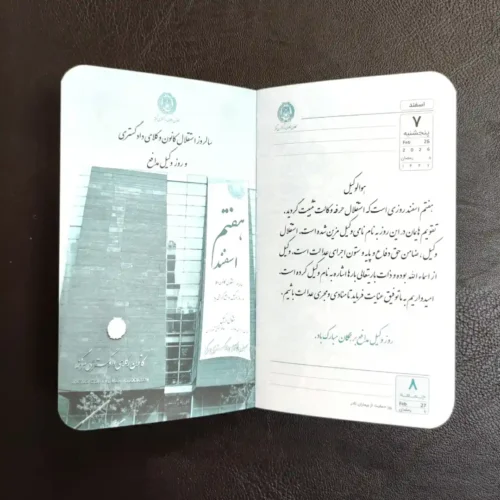 سالروز استقلال کانون وکلای دادگستری
و روز وکیل مدافع
هفتم
اسفند
اسفند
۷
پنجشنبه
Feb 26
رمضان
هوالوکیل
هفتم اسفند روزی است که استقلال حرفه وکالت تثبیت گردید.
تقویم هایمان در این روز به نام نامی وکیل مزین شده است. استقلال
وکیل، ضامن حق دفاع و پایه و ستون اجرای عدالت است. وکیل
از اسماء الله بوده و ذات باریتعالی بارها اشاره به نام وکیل کرده است.
امید واریم به ما توفیق عنایت فرماید تا منادی و مجری عدالت باشیم.
روز وکیل مدافع بر همگان مبارک باد.
۸
جمعه
Feb 27
رمضان